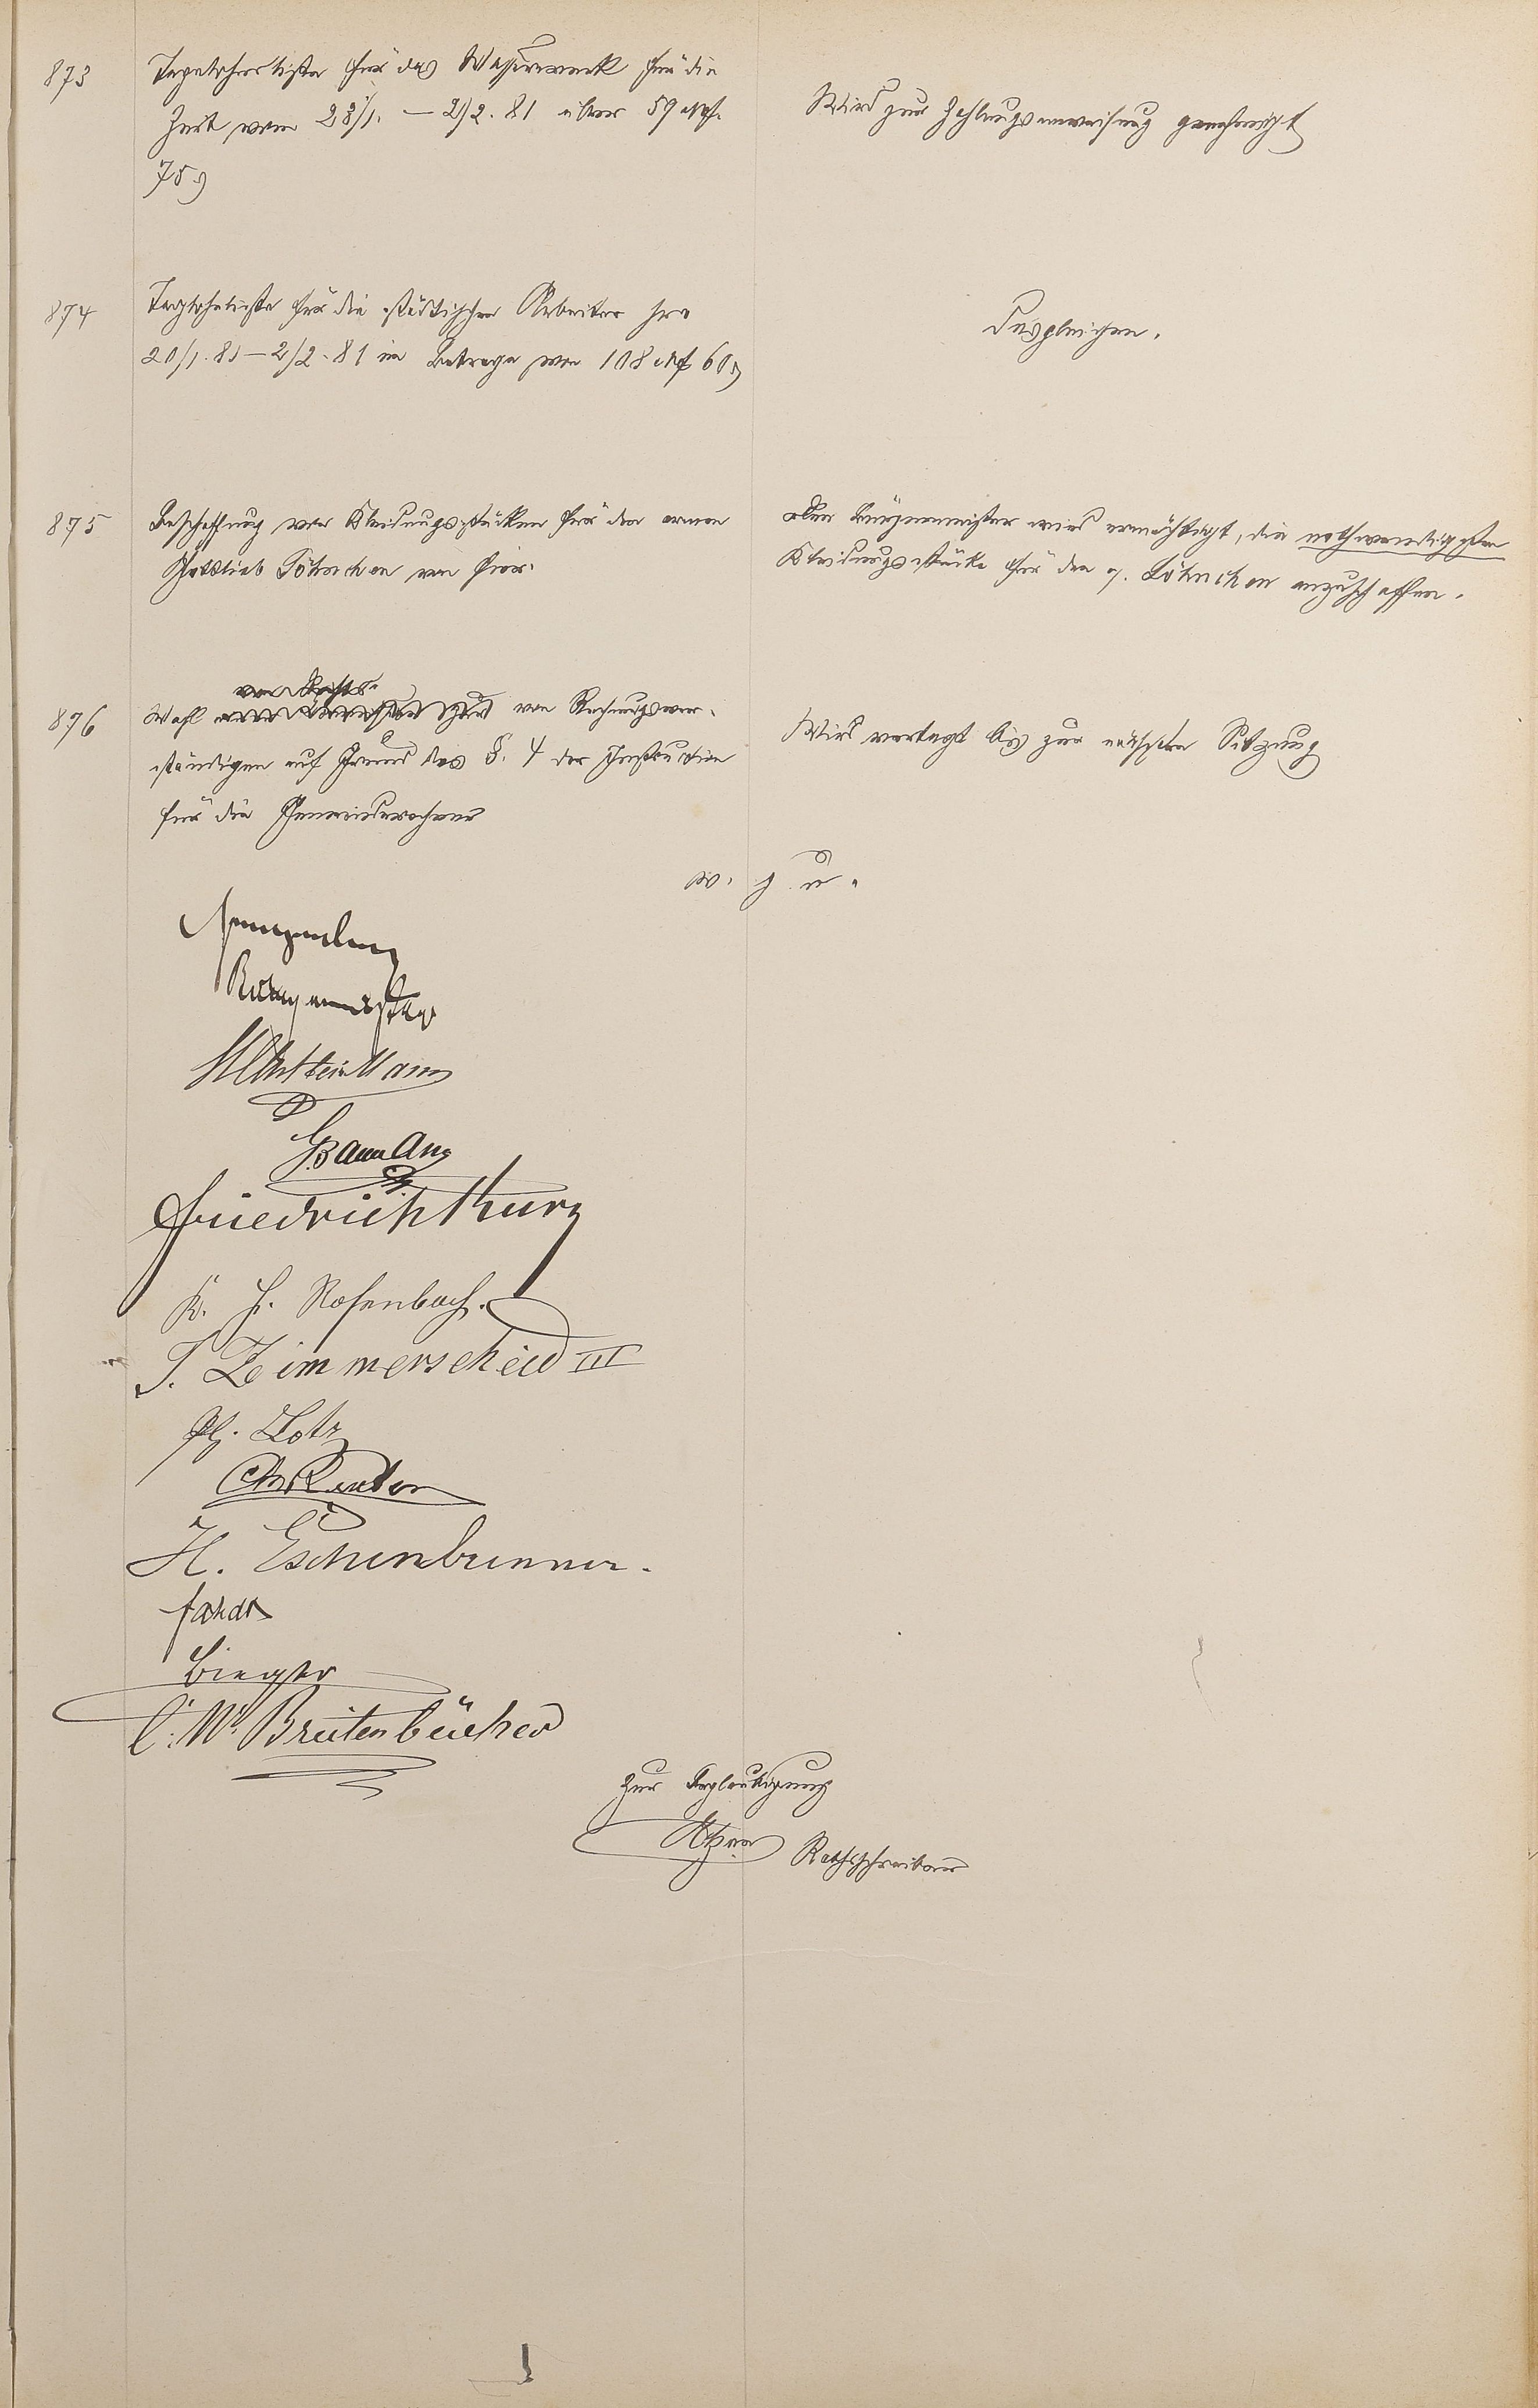 873
Tagelohnliste für das Wasserwerk für die
Zeit vom 28/1. – 2/2. 81 über 59 M.
75 ₰
Wird zur Zahlungsanweisung genehmigt
874
Taglohnliste für die städtischen Arbeiter pro
20/1. 81 – 2/2. 81 im Betrage von 108 M 60 ₰
Desgleichen.
875
Beschaffung von Kleidungsstücken für den armen
Gottlieb Löhnchen von hier.
Der Bürgermeister wird ermächtigt, die nothwendigsten
Kleidungsstücke für den g. Löhnchen anzuschaffen.
876
Wahl von Rechnungsver-
ständigen auf Grund des §. 4 der Instruction
für die Gemeinderechner
Wird vertagt bis zur nächsten Sitzung
v. g. u.
Bürgermeister
G. Baumann
Friedrich Kurz
K. H. Rosenbach.
J. Zimmerscheid III
Ph. Lotz
H. Eschenbrenner.
Bieger
C. W. Breitenbücher
Zur Beglaubigung
Rathschreiber